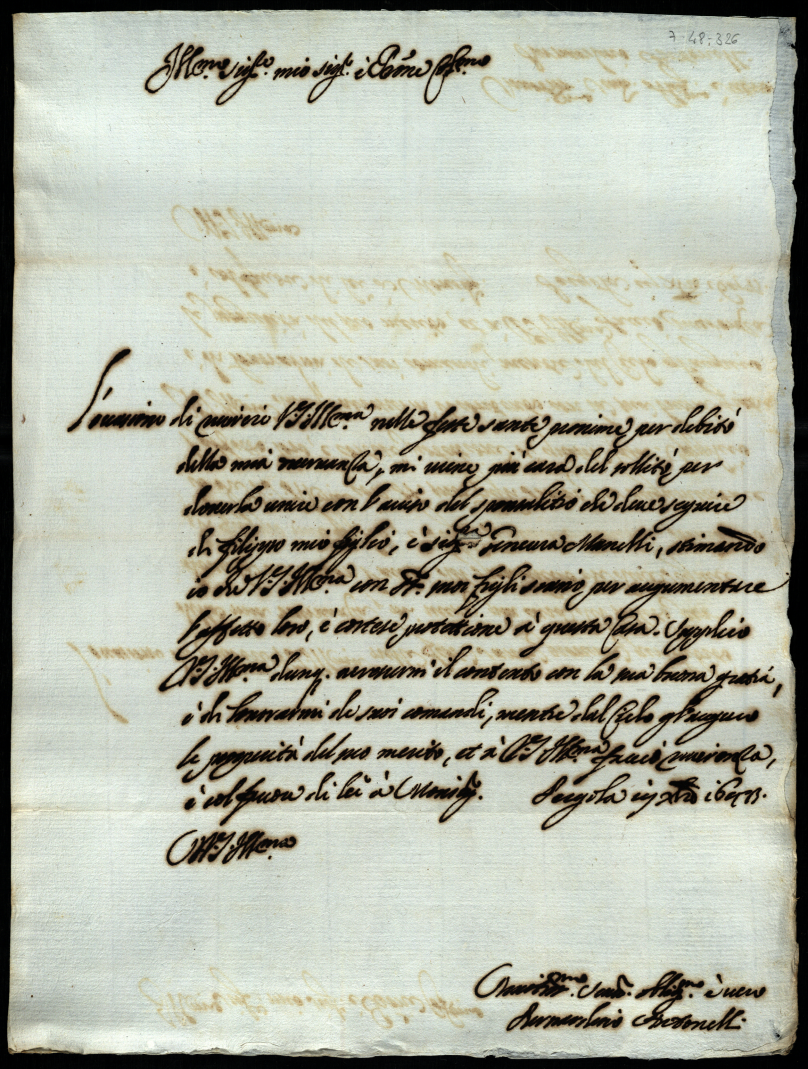 7-48-326
Ill.mo sig.re mio sig.re è Prone Col.mo
L'occasione di riverir V.S. Ill.ma nelle feste sante prossime per debito
della mia riverenza, mi viene più cara del solito per
doverla unire con l'aviso del sponsalitio che deve seguire
di Filippo mio figlio, è sig.ra Genevra Manelli, stimando
io che V.S. Ill.ma con miei figli siano per augumentare
l'affetto loro, è cortese protetione à questa Casa. Supplico
V.S. Ill.ma dunq. accrescermi il contento con la sua buona gratia,
è di honorarmi de suoi comandi, mentre dal Cielo gl'auguro
le prosperità del suo merito, et à V.S. Ill.ma faccio riverenza,
è col favor di lei à Monsig.r Pergola xbre
Di V.S. Ill.ma
Devotiss.mo Ser.re Oblig.mo è vero
Bernardino